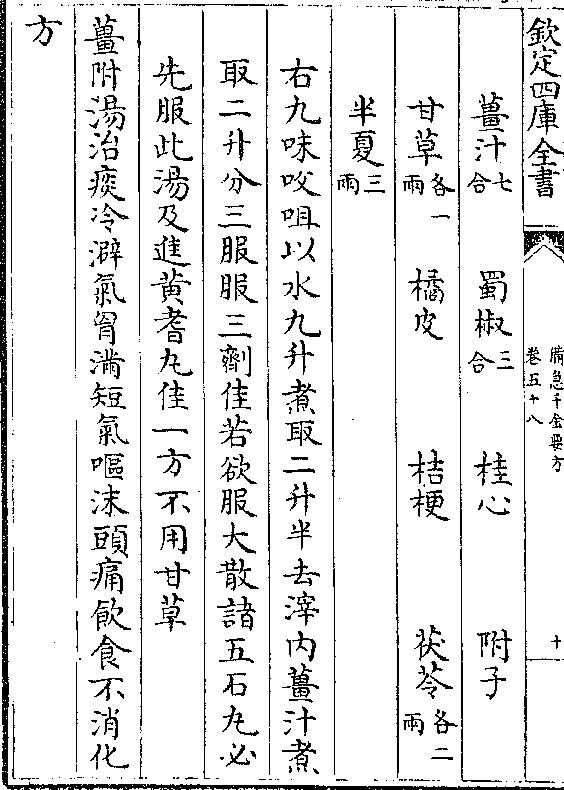 欽定四庫全書
備急千金要方
卷五十八
十
薑汁七合 蜀椒三合 桂心 附子
甘草各一兩 橘皮 桔梗 茯苓各二兩
半夏三兩
右九味㕮咀以水九升煮取二升半去滓内薑汁煮
取二升分三服服三劑佳若欲服大散諸五石丸必
先服此湯及進黄耆丸佳一方不用甘草
薑附湯治痰冷澼氣胷滿短氣嘔沫頭痛飲食不消化
方